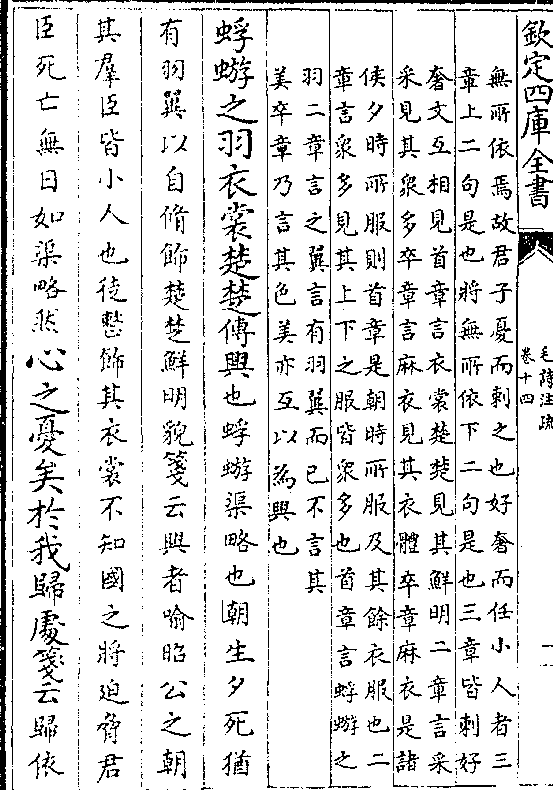 欽定四庫全書
毛詩注疏
卷十四
一
無所依焉故君子憂而刺之也好奢而任小人者三
章上二句是也將無所依下二句是也三章皆刺好
奢文互相見首章言衣裳楚楚見其鮮明二章言采
采見其衆多卒章言麻衣見其衣體卒章麻衣是諸
侯夕時所服則首章是朝時所服及其餘衣服也二
章言衆多見其上下之服皆衆多也首章言蜉蝣之
羽二章言之翼言有羽翼而已不言其
美卒章乃言其色美亦互以為興也
蜉蝣之羽衣裳楚楚傳興也蜉蝣渠略也朝生夕死猶
有羽翼以自脩飾楚楚鮮明貌箋云興者喻昭公之朝
其羣臣皆小人也徒整飾其衣裳不知國之將迫脅君
臣死亡無日如渠略然心之憂矣於我歸處箋云歸依